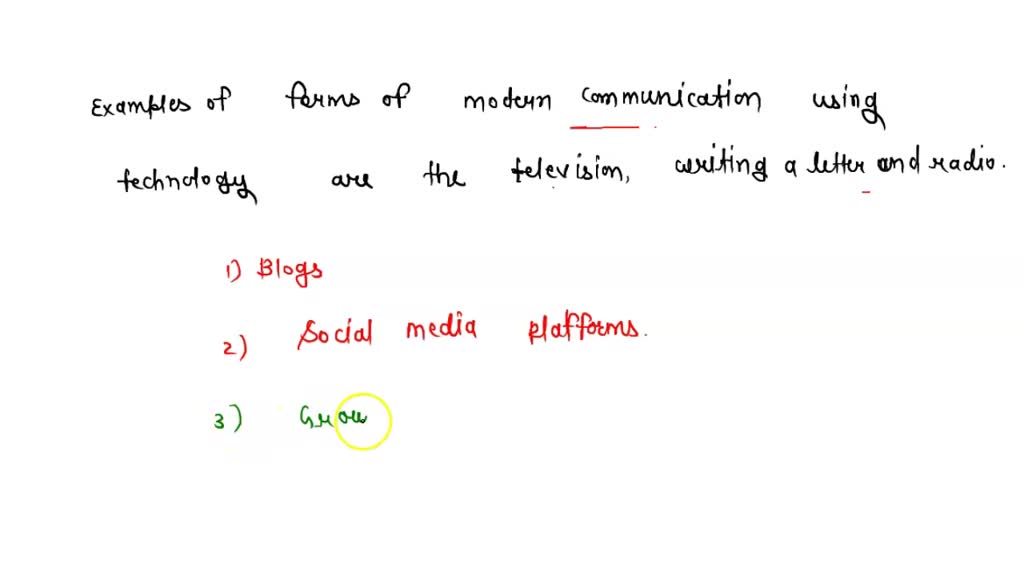 Examples of forms of modern communication using
technology are the television, writing a letter and radio.
1) Blogs
2) Social media platforms.
3) Grou